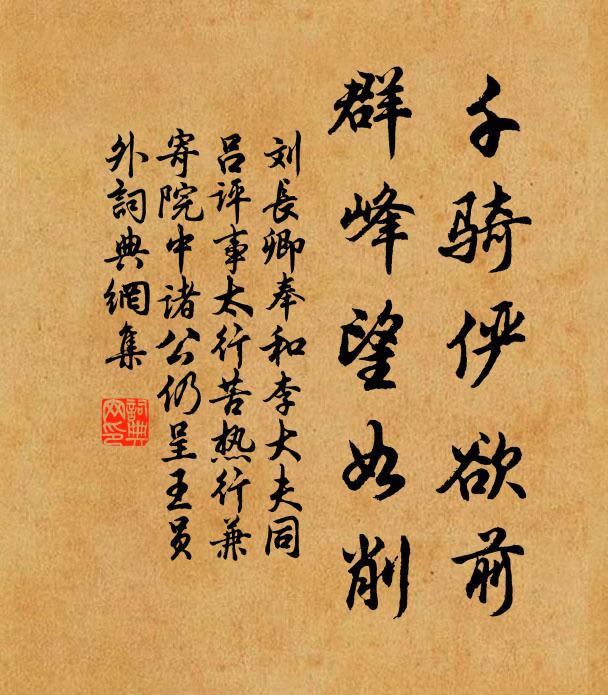 千骑俨欲前
群峰望如削
刘长卿奉和李大夫同
吕评事太行苦热行兼
寄院中诸公仍呈王员
外词典網集
詞典網印